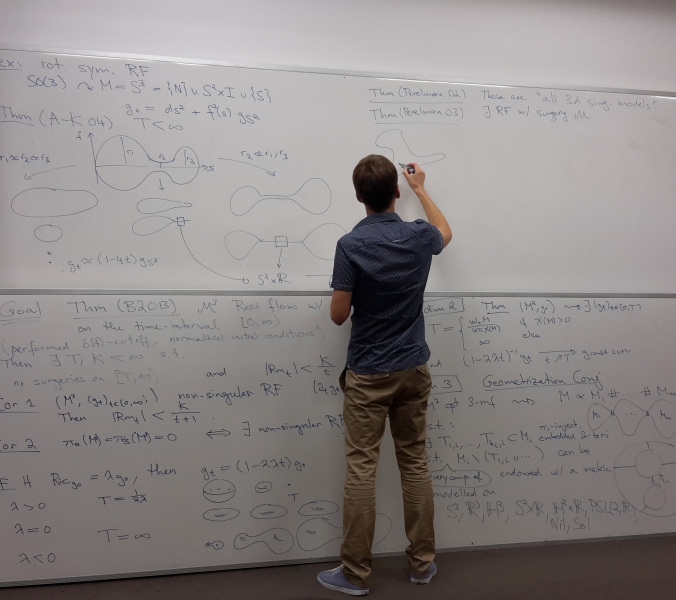 Ex: rot. sym. RF
SO(3) ↷ M = S³ = {N} ∪ S²×I ∪ {S}
g₀ = ds² + f²(s) g_{S²}
Thm (A-K 04) T < ∞
f
r₁ r₂ r₃ s
r₁ ≈ r₂ ≈ r₃
r₂ ≪ r₁, r₃
g_t ≈ (1-4t) g_{S²}
S²×ℝ
Thm (Perelman 02) These are "all 3d sing. models"
Thm (Perelman 03) ∃ RF w/ surgery M
Goal Thm (B 2013) M³ Ricci flows w/
on the time-interval [0,∞)
(performed δ(t)-cutoff, normalized initial conditions)
Then ∃ T, K < ∞ s.t.
no surgeries on [T,∞) and |Rm_t| < K/t
Cor 1 (M³, (g_t)_{t∈[0,∞)}) non-singular RF
Then |Rm_t| < K/(t+1)
Cor 2 π₂(M) = π₃(M) = 0 ⟺ ∃ non-singular RF
If Ric_{g₀} = λg₀, then g_t = (1-2λt) g₀
λ>0 T = 1/2λ
λ=0 T = ∞
λ<0
dim 2 Thm (M²,g₀) ⇝ ∃ (g_t)_{t∈[0,T)}
T = { if χ(M)>0
∞ else
(1-2λt)⁻¹ g_t const curv
3 Geometrization Conj
3-mf M ≈ M₁ # … # M_m
M₁
s.t.: π₁-inject.
∃ T_{1,i}, … ⊂ M_i embedded 2-tori
s.t. M_i \ (T_{1,i} ∪ …) can be
every comp. of endowed w/ a metric
modelled on
S³, ℝ³, ℍ³, S²×ℝ, ℍ²×ℝ,
Nil, Sol